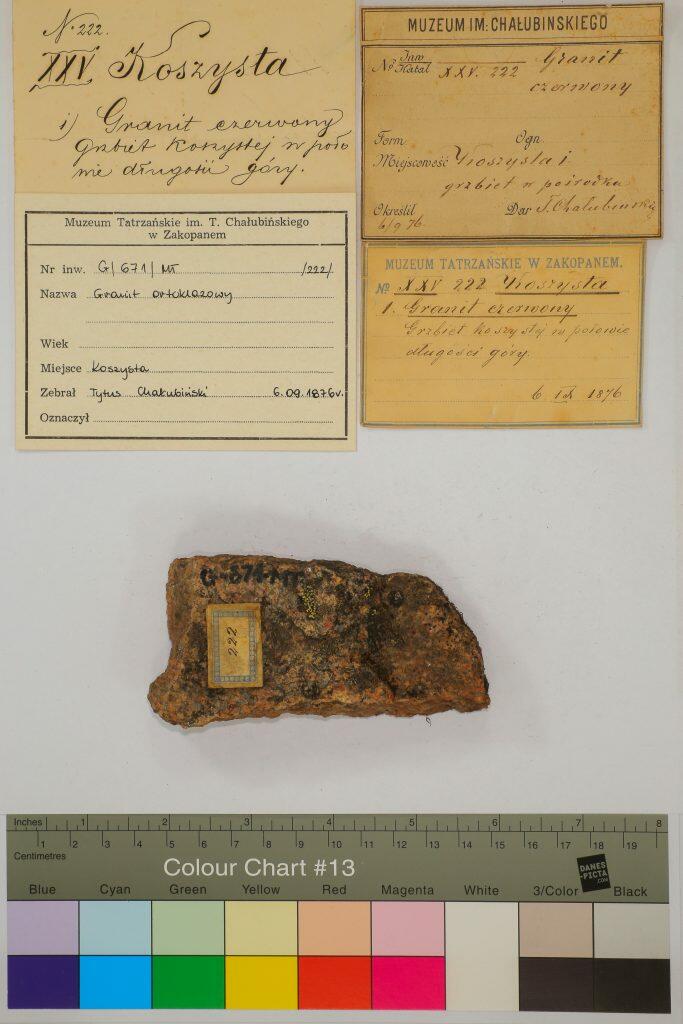 N. 222.
XXV Koszysta
1) Granit czerwony
grzbiet Koszystej w poło
wie długości góry.
MUZEUM IM: CHAŁUBINSKIEGO
No Inw Katal XXV. 222 Granit
czerwony
Form Ogn.
Miejscowość Koszysta i
grzbiet w pośrodku
Określił Dar T. Chałubińskiego
6/9 76.
Muzeum Tatrzańskie im. T. Chałubińskiego
w Zakopanem
Nr inw. G/671/MT /222/
Nazwa Granit ortoklazowy
Wiek
Miejsce Koszysta
Zebrał Tytus Chałubiński 6.09.1876r.
Oznaczył
MUZEUM TATRZAŃSKIE W ZAKOPANEM.
№ XXV 222 Koszysta
1. Granit czerwony
Grzbiet koszystej w połowie
długości góry.
6 IX 1876
G-671-MT
222
Inches 1 2 3 4 5 6 7 8
1 2 3 4 5 6 7 8 9 10 11 12 13 14 15 16 17 18 19
Centimetres
Colour Chart #13
DANES
-PICTA
.COM
Blue Cyan Green Yellow Red Magenta White 3/Color Black